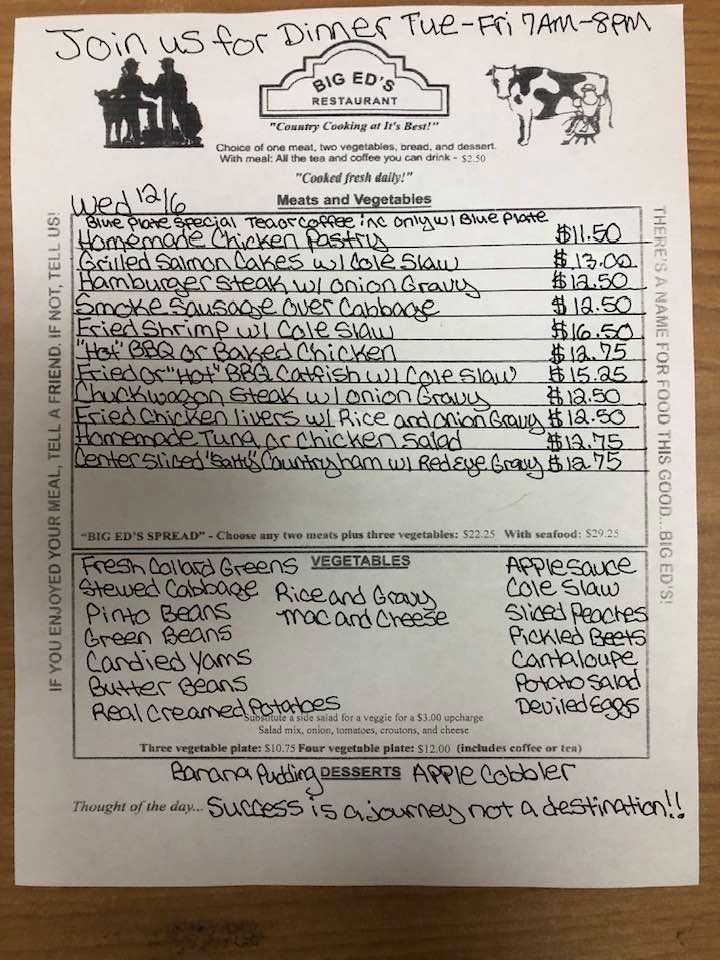 Join us for Dinner Tue-Fri 7AM-8PM
BIG ED'S
RESTAURANT
"Country Cooking at It's Best!"
Choice of one meat, two vegetables, bread, and dessert.
With meal: All the tea and coffee you can drink - $2.50
"Cooked fresh daily!"
Wed 12/6
Meats and Vegetables
Blue Plate Special Tea or Coffee inc only w/ Blue Plate
Homemade Chicken Pastry $11.50
Grilled Salmon Cakes w/ Cole Slaw $13.00
Hamburger Steak w/ onion Gravy $12.50
Smoke Sausage Over Cabbage $12.50
Fried Shrimp w/ Cole Slaw $16.50
"Hot" BBQ or Baked Chicken $12.75
Fried or "Hot" BBQ Catfish w/ Cole Slaw $15.25
Chuckwagon Steak w/ onion Gravy $12.50
Fried Chicken livers w/ Rice and Onion Gravy $12.50
Homemade Tuna or Chicken Salad $12.75
Center Sliced "Salty" Country ham w/ Red Eye Gravy $12.75
"BIG ED'S SPREAD" - Choose any two meats plus three vegetables: $22.25 With seafood: $29.25
VEGETABLES
Fresh Collard Greens
Stewed Cabbage
Pinto Beans
Green Beans
Candied Yams
Butter Beans
Real Creamed Potatoes
Rice and Gravy
Mac and Cheese
Applesauce
Cole Slaw
Sliced Peaches
Pickled Beets
Cantaloupe
Potato Salad
Deviled Eggs
Substitute a side salad for a veggie for a $3.00 upcharge
Salad mix, onion, tomatoes, croutons, and cheese
Three vegetable plate: $10.75 Four vegetable plate: $12.00 (includes coffee or tea)
Banana Pudding DESSERTS Apple Cobbler
Thought of the day... Success is a journey not a destination!!
IF YOU ENJOYED YOUR MEAL, TELL A FRIEND. IF NOT, TELL US!
THERE'S A NAME FOR FOOD THIS GOOD...BIG ED'S!